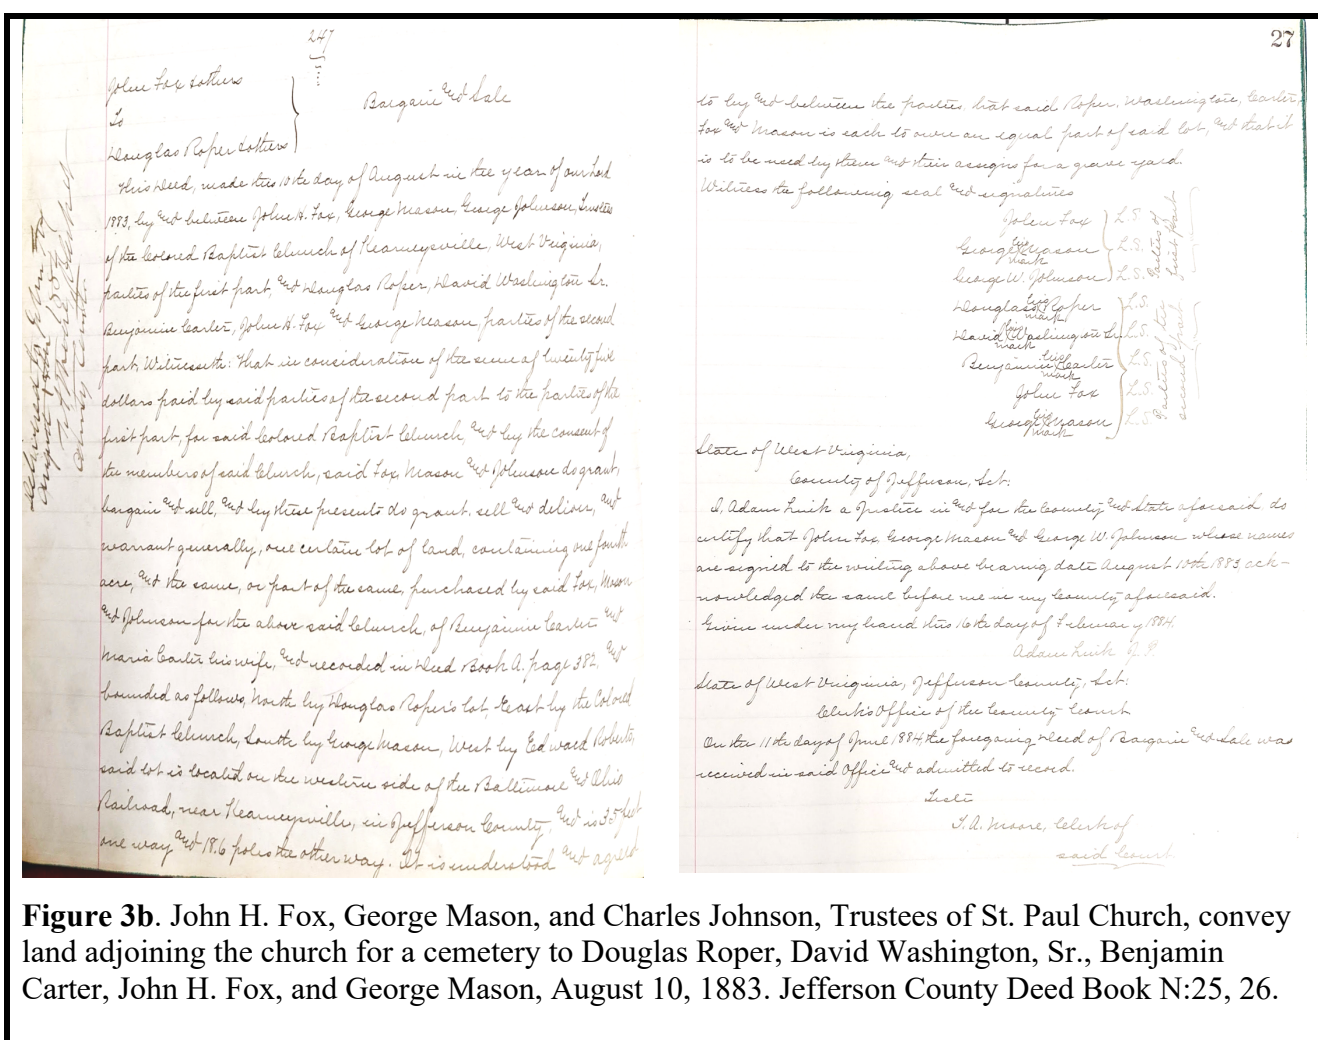 247
John Fox & others
To
Douglas Roper & others
Bargain and Sale
This Deed, made this 10th day of August in the year of our Lord
1883, by and between John H. Fox, George Mason, George Johnson, Trustees
of the Colored Baptist Church of Kearneysville, West Virginia,
parties of the first part, and Douglas Roper, David Washington Sr.
Benjamin Carter, John H. Fox and George Mason, parties of the second
part, Witnesseth: that in consideration of the sum of twenty five
dollars paid by said parties of the second part to the parties of the
first part, for said Colored Baptist Church, and by the consent of
the members of said Church, said Fox, Mason and Johnson do grant,
bargain and sell, and by these presents do grant, sell and deliver, and
warrant generally, one certain lot of land, containing one fourth
acre, and the same, or part of the same, purchased by said Fox, Mason
and Johnson for the above said Church, of Benjamin Carter and
Maria Carter his wife, and recorded in Deed Book A. page 382, and
bounded as follows, North by Douglas Roper's lot, East by the Colored
Baptist Church, South by George Mason, West by Edward Roberts,
said lot is located on the western side of the Baltimore and Ohio
Railroad, near Kearneysville, in Jefferson County, and is 35 feet
one way and 18.6 poles the other way. It is understood and agreed
27
to by and between the parties, that said Roper, Washington, Carter,
Fox and Mason is each to own an equal part of said lot, and that it
is to be used by them and their assigns for a grave yard.
Witness the following seal and signatures
John Fox L.S.
George his mark Mason L.S.
George W. Johnson L.S.
Parties of
first part
Douglas his mark Roper L.S.
David his mark Washington Sr. L.S.
Benjamin his mark Carter L.S.
John Fox L.S.
George his mark Mason L.S.
Parties of the
second part
State of West Virginia,
County of Jefferson, Sct:
I, Adam Link a Justice in and for the County and State aforesaid do
certify that John Fox, George Mason and George W. Johnson whose names
are signed to the writing above bearing date August 10th 1883, ack-
nowledged the same before me in my County aforesaid.
Given under my hand this 16th day of February 1884.
Adam Link J.P.
State of West Virginia, Jefferson County, Sct:
Clerk's Office of the County Court
On the 11th day of April 1884, the foregoing Deed of Bargain and Sale was
received in said Office and admitted to record.
Teste
T. A. Moore, Clerk of
said Court
Figure 3b. John H. Fox, George Mason, and Charles Johnson, Trustees of St. Paul Church, convey
land adjoining the church for a cemetery to Douglas Roper, David Washington, Sr., Benjamin
Carter, John H. Fox, and George Mason, August 10, 1883. Jefferson County Deed Book N:25, 26.